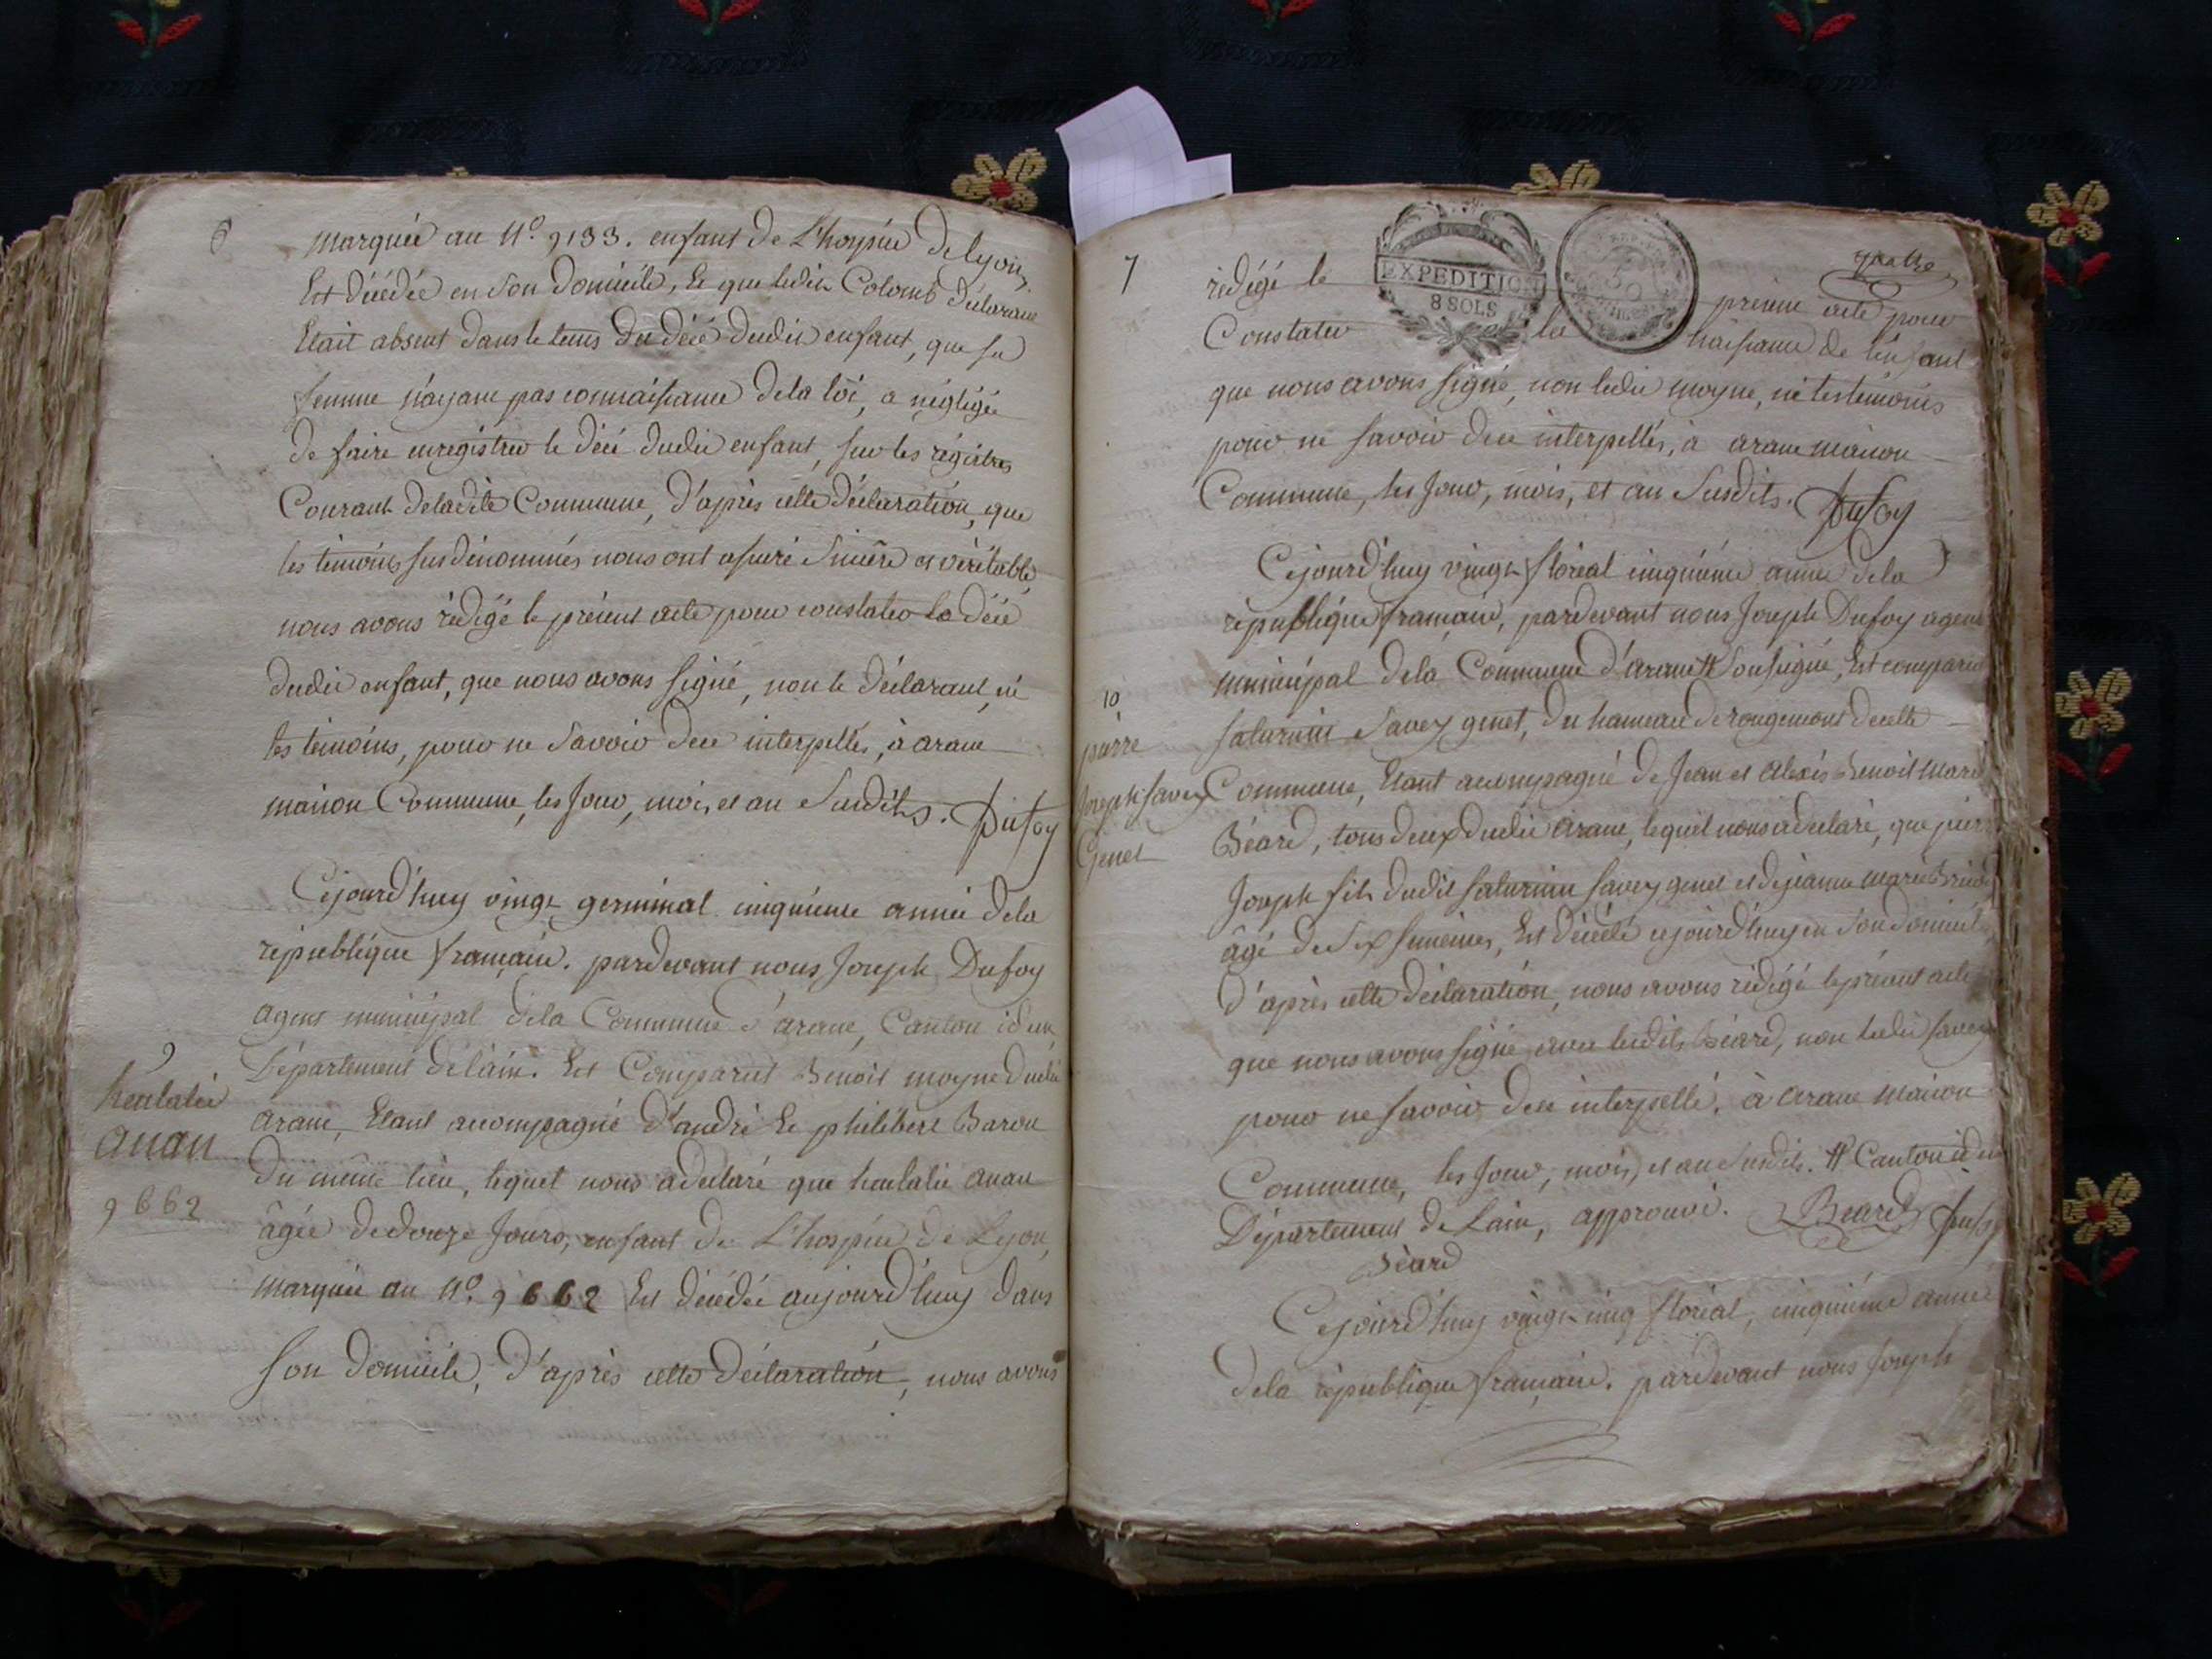 6
marquée au N.o 9133. enfant de L'hospice de lyon,
Est décédée en son domicile, Et que ledit Colomb déclarant
Etait absent dans le tems du décé dudit enfant, que sa
femme n'ayant pas connaissance de la loi, a négligée
de faire enregistrer le décé dudit enfant, sur les régistres
Courant de ladite Commune, D'après cette déclaration, que
les témoins susdénommés nous ont assuré Sincère et véritable
nous avons rédigé le présent acte pour constater le décé
dudit enfant, que nous avons signé, non le déclarant, ni
les témoins, pour ne savoir de ce interpellés, à arane
maison Commune, les Jour, mois, et an Susdits. Dufoy
Cejourd'huy vingt germinal cinquième année dela
république française. pardevant nous Joseph Dufoy
agent municipal dela Commune d'arane, Canton idem
Département de lain. Est Comparut Benoit moyne dudit
arane, Etant acompagné d'andré Et philibert Baron
du même lieu, lequel nous a déclaré que heulalie anan
âgée de douze Jours, enfant de L'hospice de Lyon,
marquée au N.o 9662 Est décédée aujourd'huy dans
son domicile, D'après cette déclaration, nous avons
9
heulalie
anan
9662
7
quatre
EXPEDITION
8 SOLS
rédigé le présent acte pour
Constater la naissance de lenfant
que nous avons signé, non ledit moyne, ni les témoins
pour ne savoir de ce interpellés, à arane maison
Commune, les Jour, mois, et an Susdits. Dufoy
Cejourd'huy vingt floréal cinquième année dela
république française, pardevant nous Joseph Dufoy agent
municipal dela Commune d'arane # Soussigné, Est comparu
saturnin Savey genet, du hameau de rougemont de cette
Commune, Etant acompagné de Jean et Alexis Benoit Marie
Béard, tous deux dudit arane, lequel nous a declaré, que pierre
Joseph fils dudit saturnin savey genet et de jeanne marie
âgé de Six semaines, Est décédé cejourd'huy en son domicile
d'après cette déclaration, nous avons rédigé le présent acte
que nous avons signé avec lesdits Béard, non ledit savey
pour ne savoir de ce interpellé. à arane maison
Commune, les Jour, mois, et an susdits. # Canton idem
Département de Lain, approuvé. Beard Dufoy
Béard
Cejourd'huy vingt cinq floréal, cinquième année
dela république française. pardevant nous Joseph
10
pierre
Joseph Savey
Genet